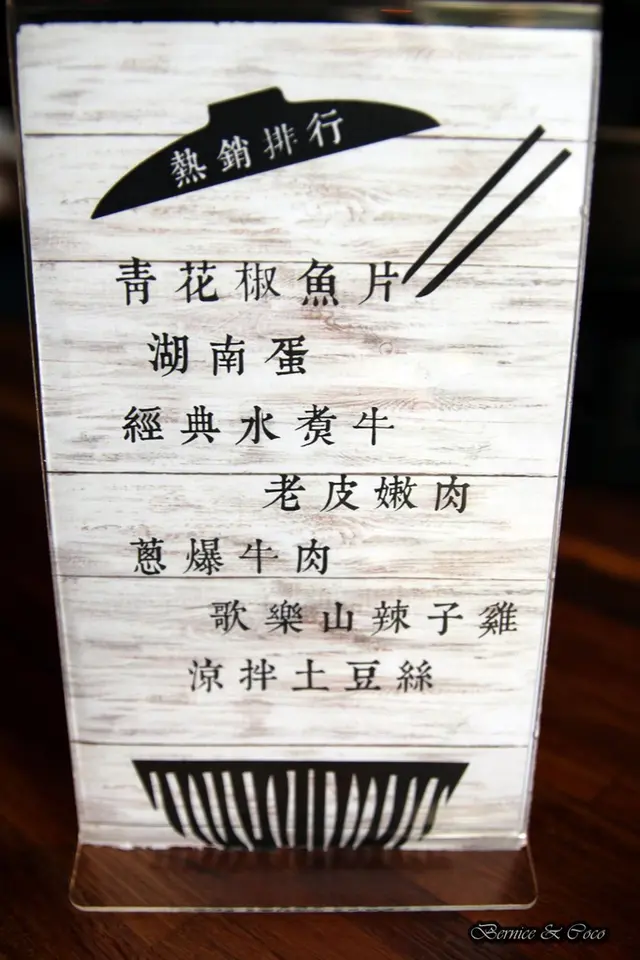 熱銷排行
青花椒魚片
湖南蛋
經典水煑牛
老皮嫩肉
蔥爆牛肉
歌樂山辣子雞
涼拌土豆絲
Bernice & Coco